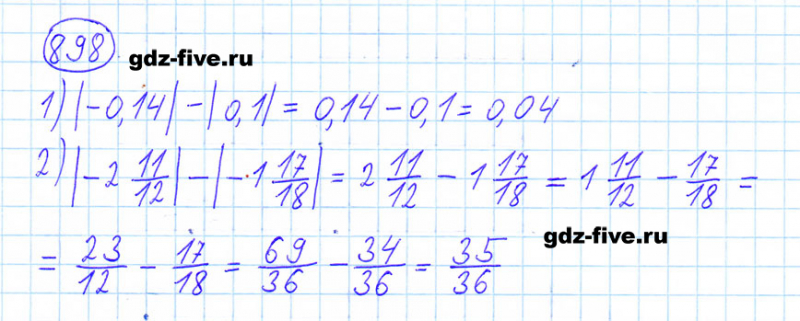 898
gdz-five.ru
1) |-0,14| - |0,1| = 0,14 - 0,1 = 0,04
2) |-2 11/12| - |-1 17/18| = 2 11/12 - 1 17/18 = 1 11/12 - 17/18 =
= 23/12 - 17/18 = 69/36 - 34/36 = 35/36
gdz-five.ru